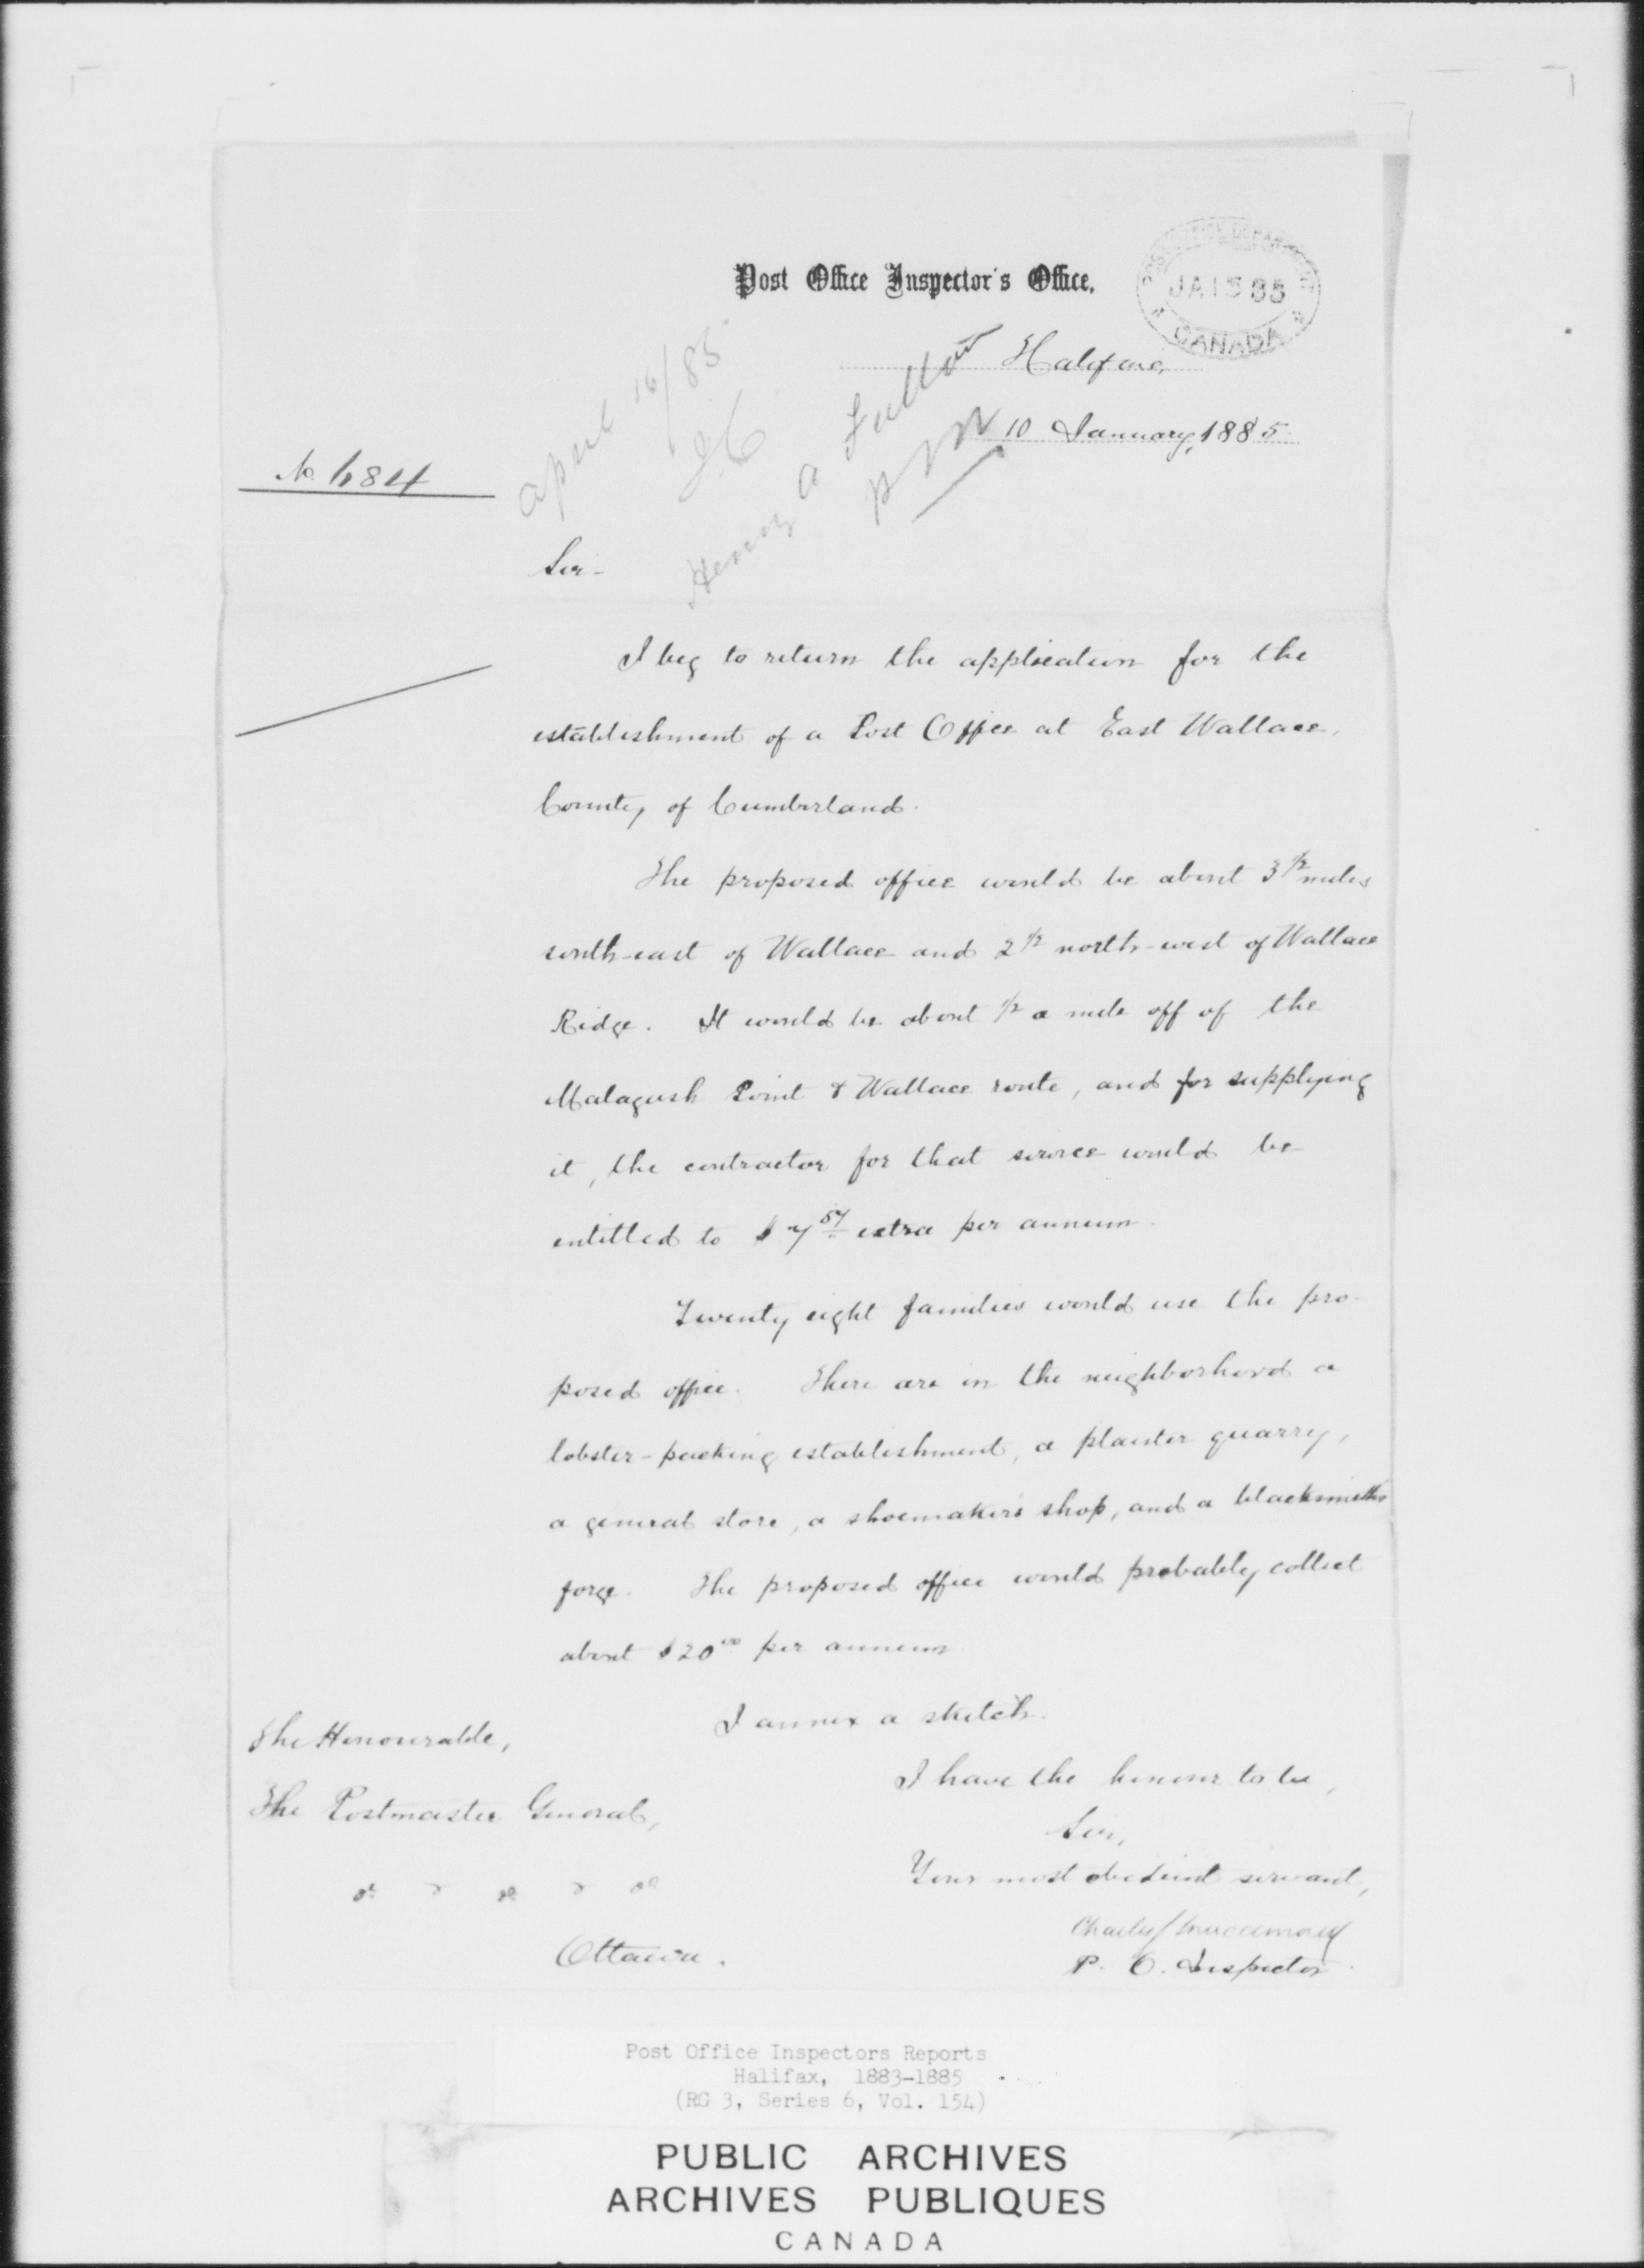 Post Office Inspector's Office,
POST OFFICE DEPARTMENT
JA 15 85
CANADA
Halifax,
10 January, 1885.
April 16/85
Henry A Fulton
P M
No 684
Sir -
I beg to return the application for the
establishment of a Post Office at East Wallace,
County of Cumberland.
The proposed office would be about 3 1/2 miles
south-east of Wallace and 2 1/2 north-west of Wallace
Ridge. It would be about 1/2 a mile off of the
Malagash Point & Wallace route, and for supplying
it, the contractor for that service would be
entitled to $7 57 extra per annum.
Twenty eight families would use the pro-
posed office. There are in the neighborhood a
lobster-packing establishment, a plaster quarry,
a general store, a shoemaker's shop, and a blacksmiths
forge. The proposed office would probably collect
about $20 00 per annum
I annex a sketch.
The Honourable,
The Postmaster General,
&c &c &c
Ottawa.
I have the honour to be,
Sir,
Your most obedient servant,
Charles J Macdonald
P. O. Inspector.
Post Office Inspectors Reports
Halifax, 1883-1885
(RG 3, Series 6, Vol. 154)
PUBLIC ARCHIVES
ARCHIVES PUBLIQUES
CANADA